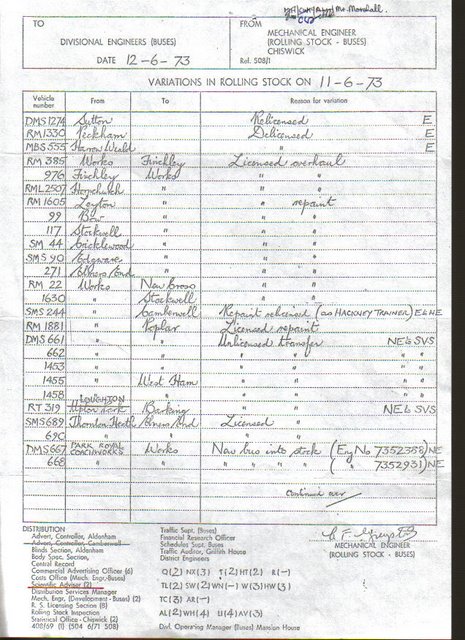 Mr. Marshall
TO
DIVISIONAL ENGINEERS (BUSES)
DATE 12-6-73
FROM
MECHANICAL ENGINEER
(ROLLING STOCK - BUSES)
CHISWICK
Ref. 508/1
VARIATIONS IN ROLLING STOCK ON 11-6-73
Vehicle number From To Reason for variation
DMS 1274 Sutton Relicensed E
RM 1330 Peckham Delicensed E
MBS 555 Harrow Weald " E
RM 385 Works Finchley Licensed overhaul
976 Finchley Works " "
RML 2507 Hornchurch " " "
RM 1605 Leyton " " repaint
99 Bow " " "
117 Stockwell " " "
SM 44 Cricklewood " " "
SMS 90 Edgware " " "
271 Elmers End " " "
RM 22 Works New Cross " "
1630 " Stockwell " "
SMS 244 " Camberwell Repaint relicensed (as HACKNEY TRAINER) E & HE
RM 1881 " Poplar Licensed repaint
DMS 661 " " Unlicensed transfer NE's SVS
662 " " " " " "
1453 " " " " " "
1455 " West Ham " " " "
1458 " " " " " "
RT 319 LOUGHTON Upton Park Barking " " NE's SVS
SMS 689 Thornton Heath Elmers End Licensed "
690 " " " "
DMS 667 PARK ROYAL COACHWORKS Works New bus into stock (Eng No 7352358) NE
668 " " " " " " ( " 7352931) NE
Continued over
DISTRIBUTION
Advert. Controller, Aldenham
Advert. Controller, Camberwell
Blinds Section, Aldenham
Body Spec. Section,
Central Record
Commercial Advertising Officer (6)
Costs Office (Mech. Engr.-Buses)
Scientific Adviser (2)
Distribution Services Manager
Mech. Engr. (Development - Buses) (2)
R. S. Licensing Section (8)
Rolling Stock Inspection
Statistical Office - Chiswick (2)
408/69 (1) (504 6/71 508)
Traffic Supt. (Buses)
Financial Research Officer
Schedules Supt. Buses
Traffic Auditor, Griffith House
District Engineers
Q(2) NX(3) T(2) HT(2) R(-)
TL(2) SW(2) WN(-) W(3) HW(3)
TC(3) AR(-)
AL(2) WH(4) U(4) AV(3)
Divl. Operating Manager (Buses) Mansion House
MECHANICAL ENGINEER
(ROLLING STOCK - BUSES)